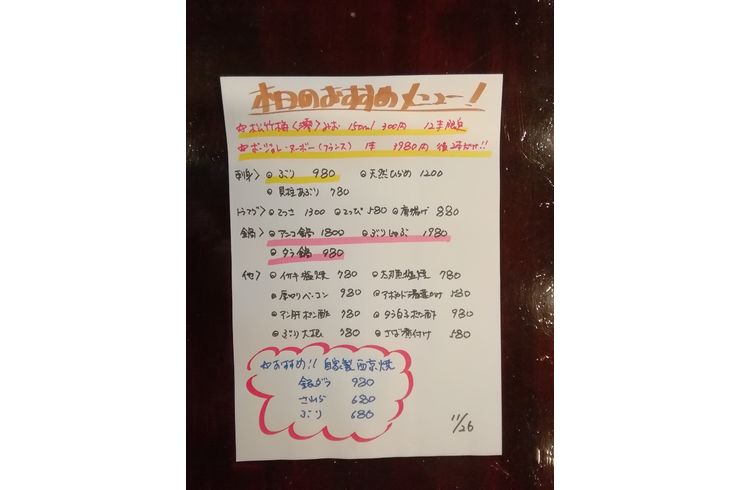 本日のおすすめメニュー!
☆松竹梅〈澪〉みお 150ml 300円 12本限定
☆ボジョレ・ヌーボー(フランス) 1本 3980円 後2本だけ!!
刺身〉 ◎ぶり 980 ◎天然ひらめ 1200
◎貝柱あぶり 780
トラフグ〉 ◎てっさ 1300 ◎てっぴ 580 ◎唐揚げ 880
鍋〉 ◎アンコ鍋 1800 ◎ぶりしゃぶ 1980
◎タラ鍋 980
他〉 ◎イサキ塩焼 780 ◎太刀魚塩焼 780
◎厚切りベーコン 980 ◎アボカド湯葉かけ 580
◎アン肝ポン酢 780 ◎タラ白子ポン酢 980
◎ぶり大根 780 ◎さば煮付け 580
☆おすすめ!! 自家製西京焼
銀ダラ 980
さわら 680
ぶり 680
11/26